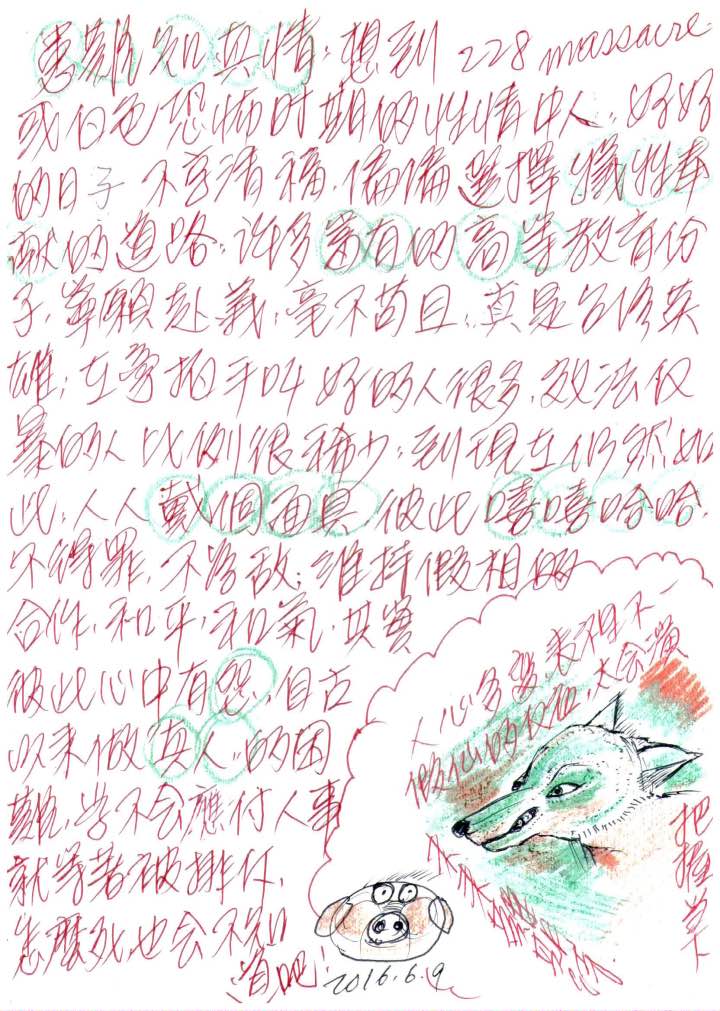 患難知真情；想到 228 massacre
或白色恐怖时期的性情中人，好好
的日子不享清福，偏偏選擇犧牲奉
献的道路；许多富有的高等教育份
子，寧願赴義，毫不苟且，真是台灣英
雄；在旁拍手叫好的人很多，效法
的人比例很稀少；到現在仍然如
此，人人戴個面具，彼此嘻嘻哈哈，
不得罪，不為敵；維持假相的
合作，和平，和氣，其實
彼此心中有怨，自古
以来做真人的困
難，学不会應付人事
就等著被排斥，
怎麼死也会不知
道吧！
2016.6.9
人心多變，表裡不一
大会
做仙的
把握当下